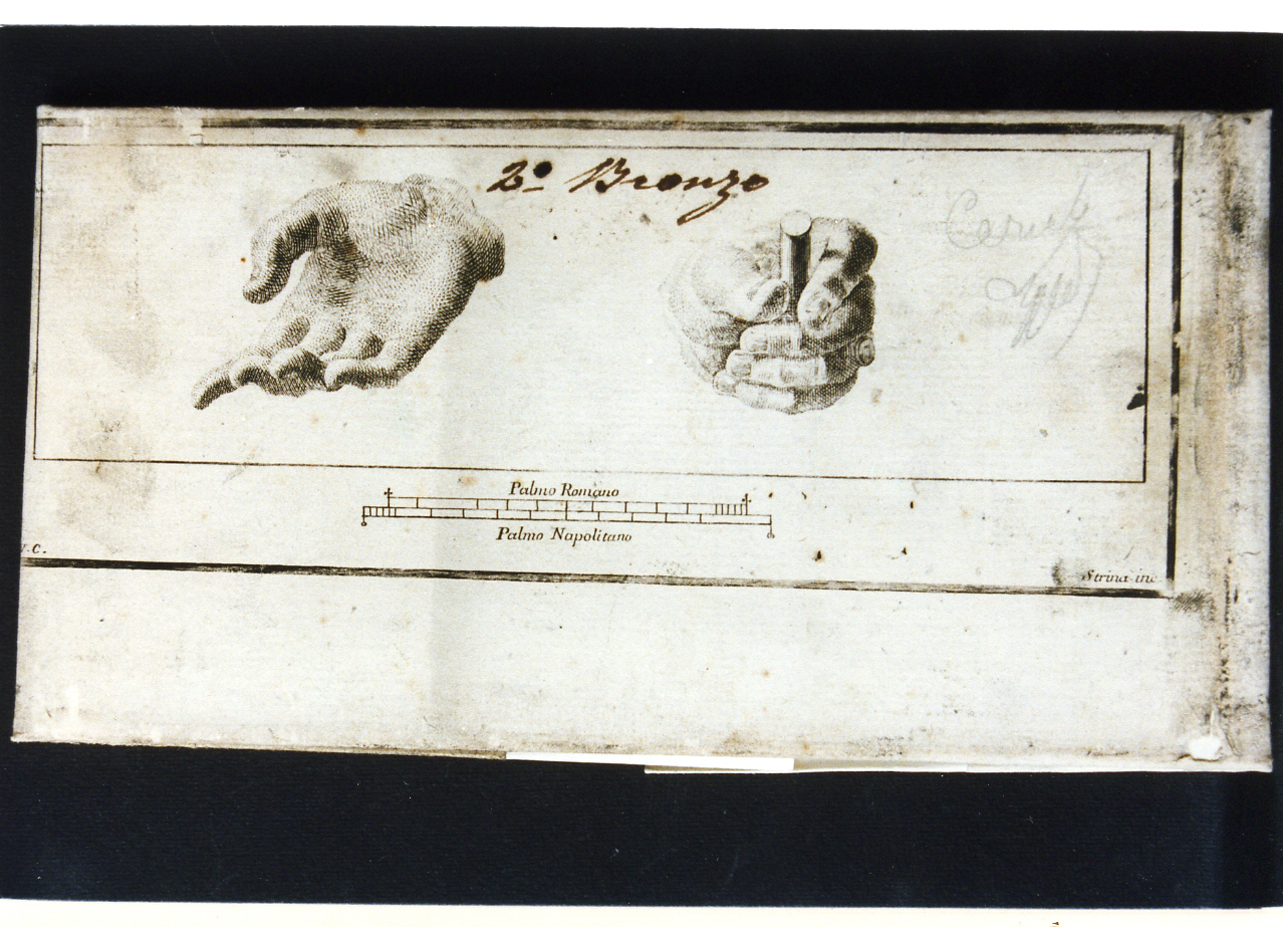 2º Bronzo
Palmo Romano
Palmo Napolitano
.C.
Strina inc